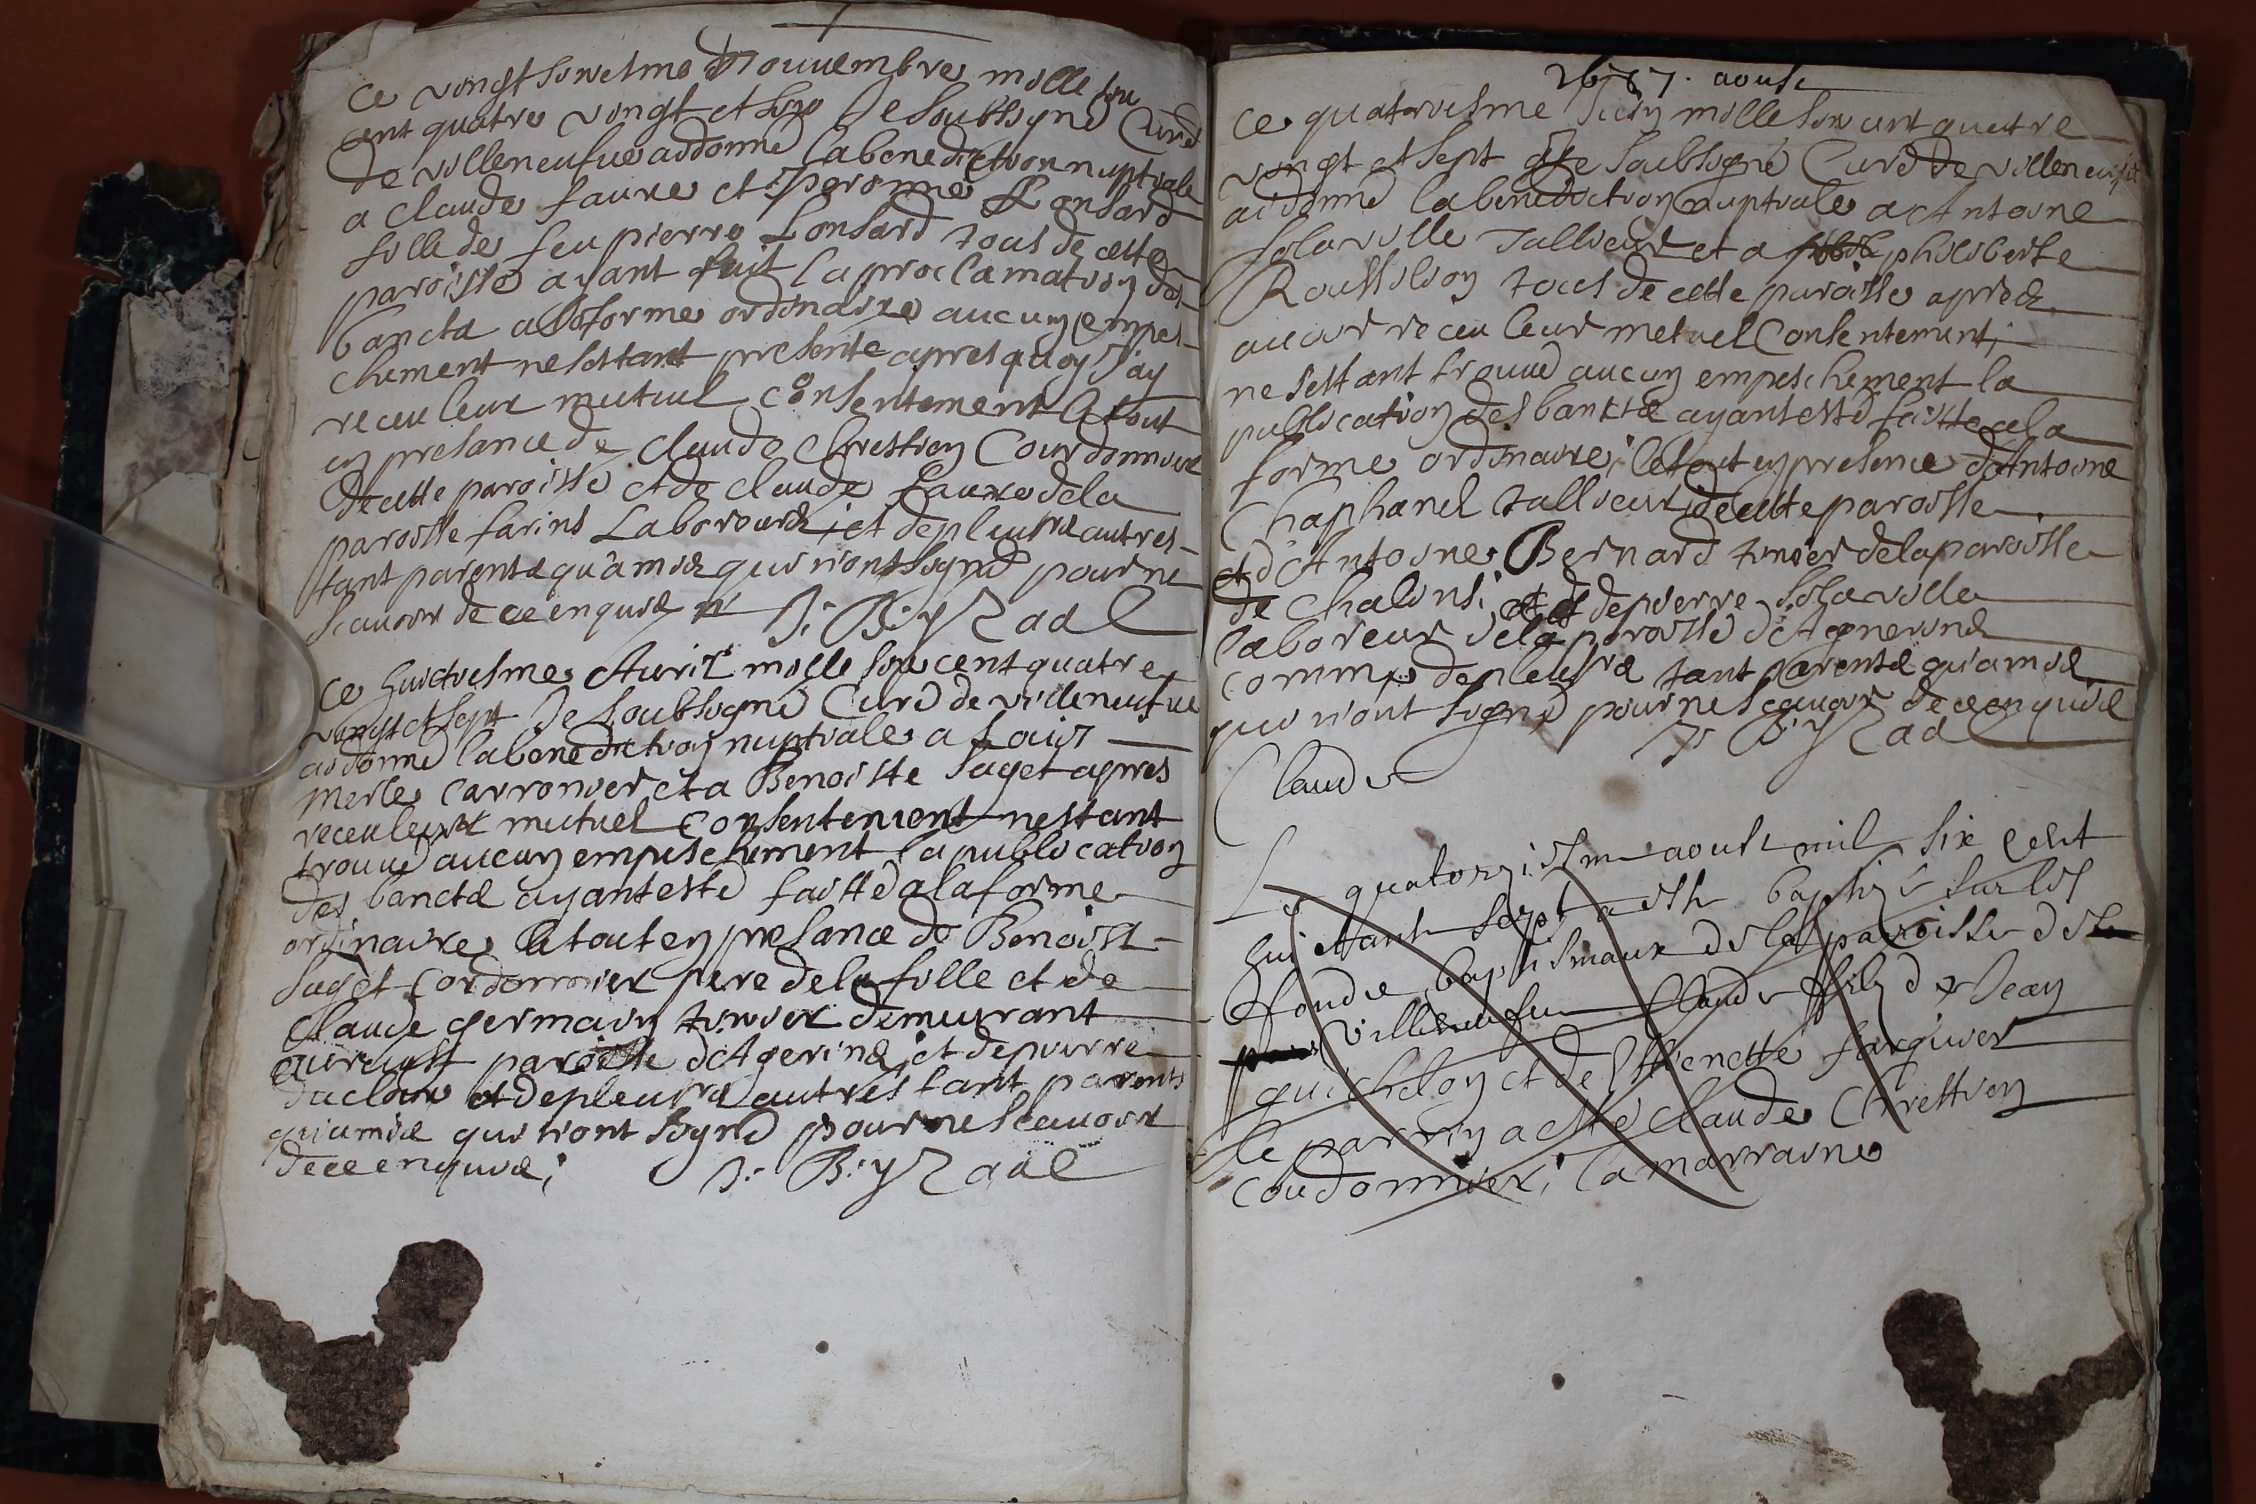 ce vingt sixiesme Novuembre mille six
cent quatre vingt et six Je soubsigné Curé
de villeneufue ai donné la benediction nuptiale
a claude faure et peronne Ronsard
fille de feu pierre Ronsard tous de cette
paroisse ayant fait la proclamation des
bancts a la forme ordinaire aucun empes-
chement ne sestant presente apres quoy J'ay
receu leur mutuel consentement le tout
en presance de claude Chrestien Courdonnier
de cette paroisse et de claude faure de la
paroisse farins Laboreurs; et de pleusrs autres
tant parents qu'amis qui n'ont signé pour ne
scauoir de ce enquis
ce huictiesme Auril mille six cent quatre
vingt et sept Je soubsigné Curé de villeneufue
ai donné la benediction nuptiale a Louis
merle carronier et a Benoiste Saget apres
receu leur mutuel consentement nestant
trouué aucun empeschement la publication
des bancts ayant esté faitte a la forme
ordinaire le tout en presance de Benoist
Saget Cordonnier pere de la fille et de
Claude germain tixier demeurant
paroisse d'Agerins; et de pierre
duclou et de pleusrs autres tant parents
qu'amis qui n'ont signé pour ne scauoir
de ce enquis;
1687. aoust
ce quatorziesme Juin mille six cent quatre
vingt et sept Je soubsigné Curé de villeneufue
ai donné la benediction nuptiale a Antoine
solaville tallieur et a philiberte
Roussilion tous de cette paroisse apres
auoir receu leur metuel Consentement;
ne sestant trouué aucun empeschement la
publication des bancts ayant esté faitte a la
forme ordinaire; le tout en presence d'Antoine
Chaphanel tallieur de cette paroisse
et d'Antoine Bernard tixier de la paroisse
de Chalins; et de pierre solaville
laboreur de la paroisse d'Agnerins
comme de pleusrs tant parents qu'amis
qui n'ont signé pour ne scauoir de ce enquis
Claude
Le quatorziesme aoust mil six cent
huictante sept a esté baptizé sur les
fondz baptismaux de la paroisse de
Villeneufue Claude filz de Jean
guichelon et de Estienette farguier
le parrin a esté Claude Chrestien
Coudonnier; la marraine